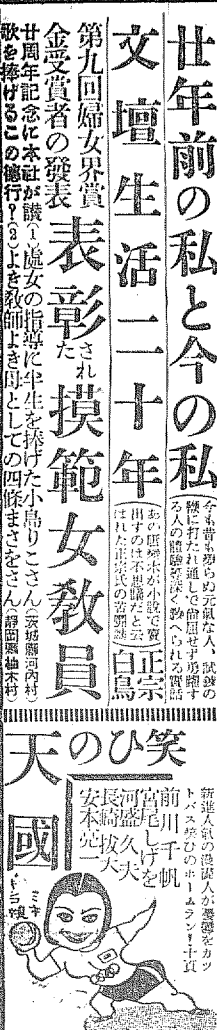 廿年前の私と今の私
今も昔も變らぬ元氣な人、試煉の
鞭に打たれ通しで尙屈せず勇躍す
る人の體驗等深く教へられる實話
文壇生活二十年
あの唐變木が小說で賣
出すのは不思議だと云
はれた正宗氏の苦鬪談
正宗白鳥
第九回婦女界賞
金受賞者の發表
表彰された摸範女敎員
廿周年記念に本社が讃
歌を捧げるこの德行?
(1)處女の指導に半生を捧げた小島りこさん(茨城縣河內村)
(2)よき敎師よき母としての四條まさをさん(靜岡縣柚木村)
笑ひの天國
新進人氣の漫畫人が憂鬱をカッ
トバス笑ひのホームラン!十頁
前川千帆
宮尾しげを
河盛久夫
長崎拔天
安本亮一